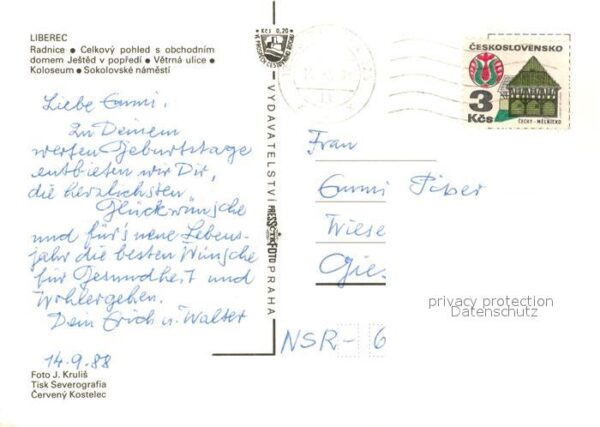 LIBEREC
Radnice • Celkový pohled s obchodním
domem Ještěd v popředí • Větrná ulice •
Koloseum • Sokolovské náměstí
Kčs 0,20
ČESKOSLOVENSKO
3
Kčs
ČECHY - MĚLNICKO
Liebe Gunni.
Zu Deinem
werten Geburtstage
entbieten wir Dir,
die herzlichsten
Glückwünsche
und für's neue Lebens-
jahr die besten Wünsche
für Gesundheit und
Wohlergehen.
Dein Erich u. Walter
14.9.88
VYDAVATELSTVÍ PRESSFOTO PRAHA
Frau
Gunni
Wiese
Gie.
NSR - 6
privacy protection
Datenschutz
Foto J. Kruliš
Tisk Severografia
Červený Kostelec